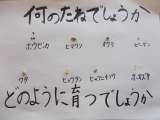 何のたねでしょうか
ホウセンカ ヒマワリ オクラ ピーマン
ワタ ヒョウタン ヒャクニチソウ ホオズキ
どのように育つでしょうか